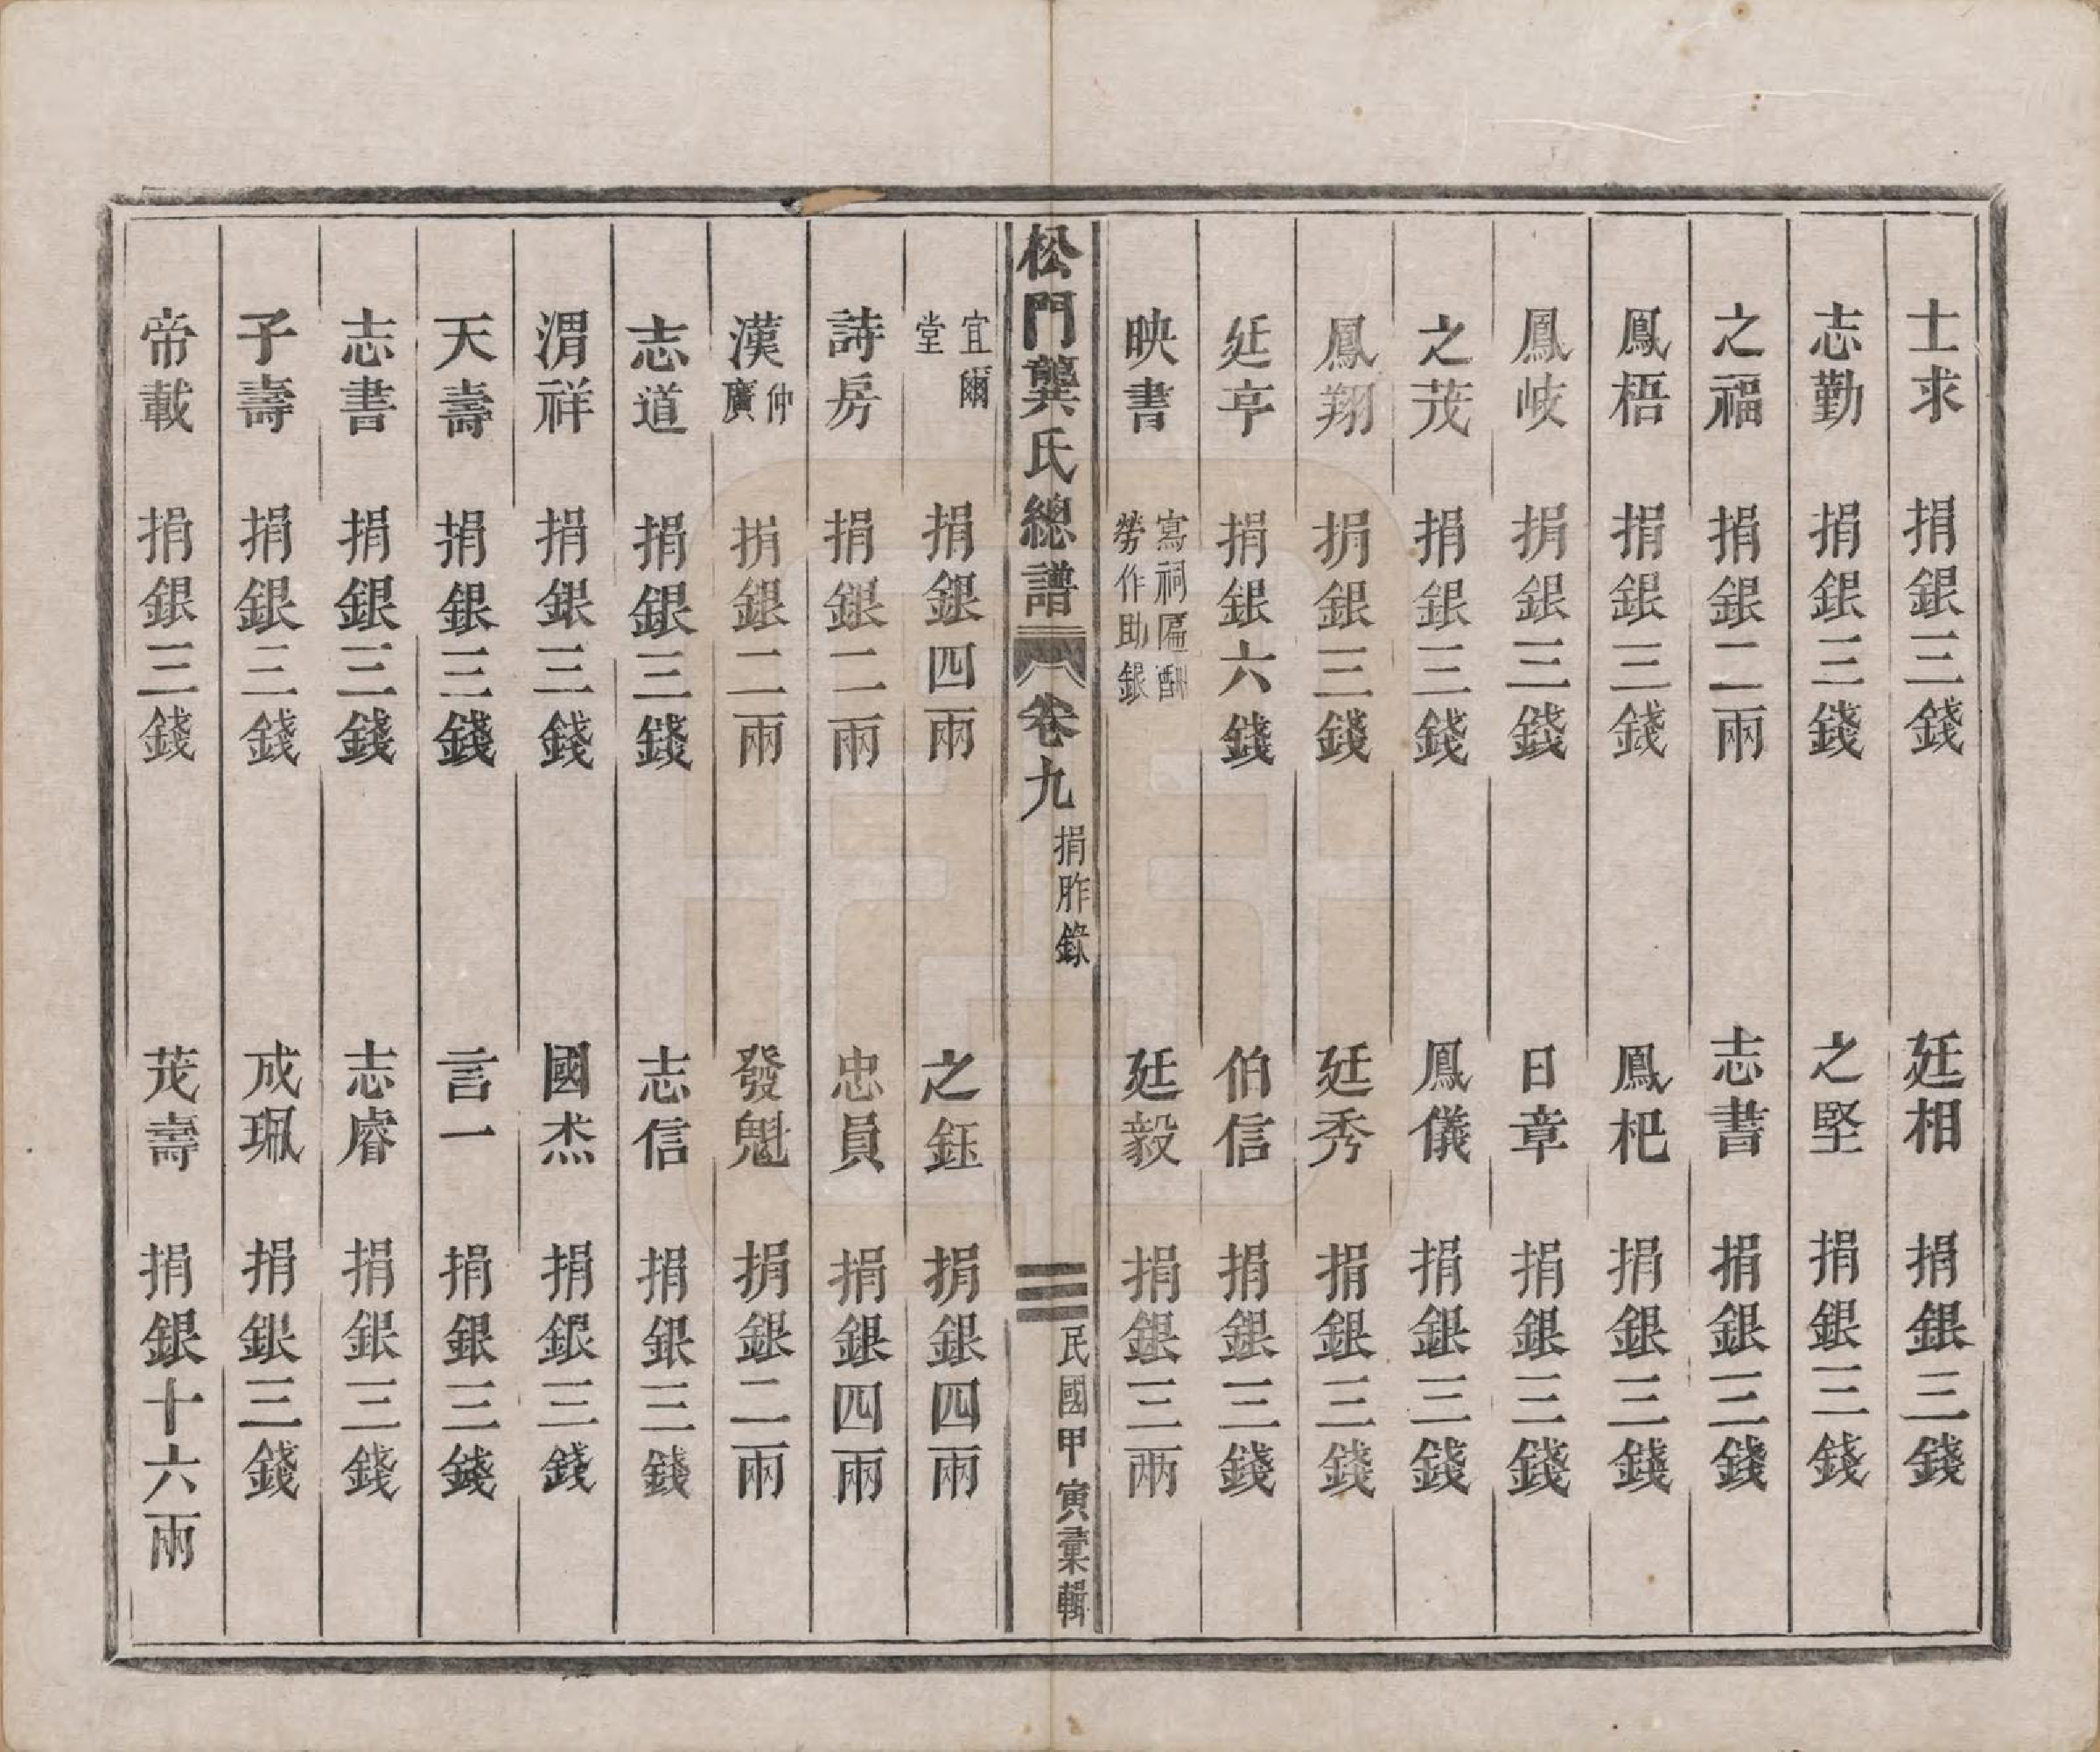 士求 捐銀三錢 廷相 捐銀三錢
志勤 捐銀三錢 之堅 捐銀三錢
之福 捐銀二兩 志書 捐銀三錢
鳳梧 捐銀三錢 鳳杷 捐銀三錢
鳳岐 捐銀三錢 日章 捐銀三錢
之茂 捐銀三錢 鳳儀 捐銀三錢
鳳翔 捐銀三錢 廷秀 捐銀三錢
廷亭 捐銀六錢 伯信 捐銀三錢
映書 寫祠匾酬勞作助銀 廷毅 捐銀三两
松門龔氏總譜 卷九 捐胙錄 三 民國甲寅彙輯
宜爾堂 捐銀四兩 之鈺 捐銀四兩
詩房 捐銀二兩 忠員 捐銀四兩
漢仲廣 捐銀二兩 發魁 捐銀二兩
志道 捐銀三錢 志信 捐銀三錢
渭祥 捐銀三錢 國杰 捐銀三錢
天壽 捐銀三錢 言一 捐銀三錢
志書 捐銀三錢 志睿 捐銀三錢
子壽 捐銀三錢 成珮 捐銀三錢
帝載 捐銀三錢 茂壽 捐銀十六兩